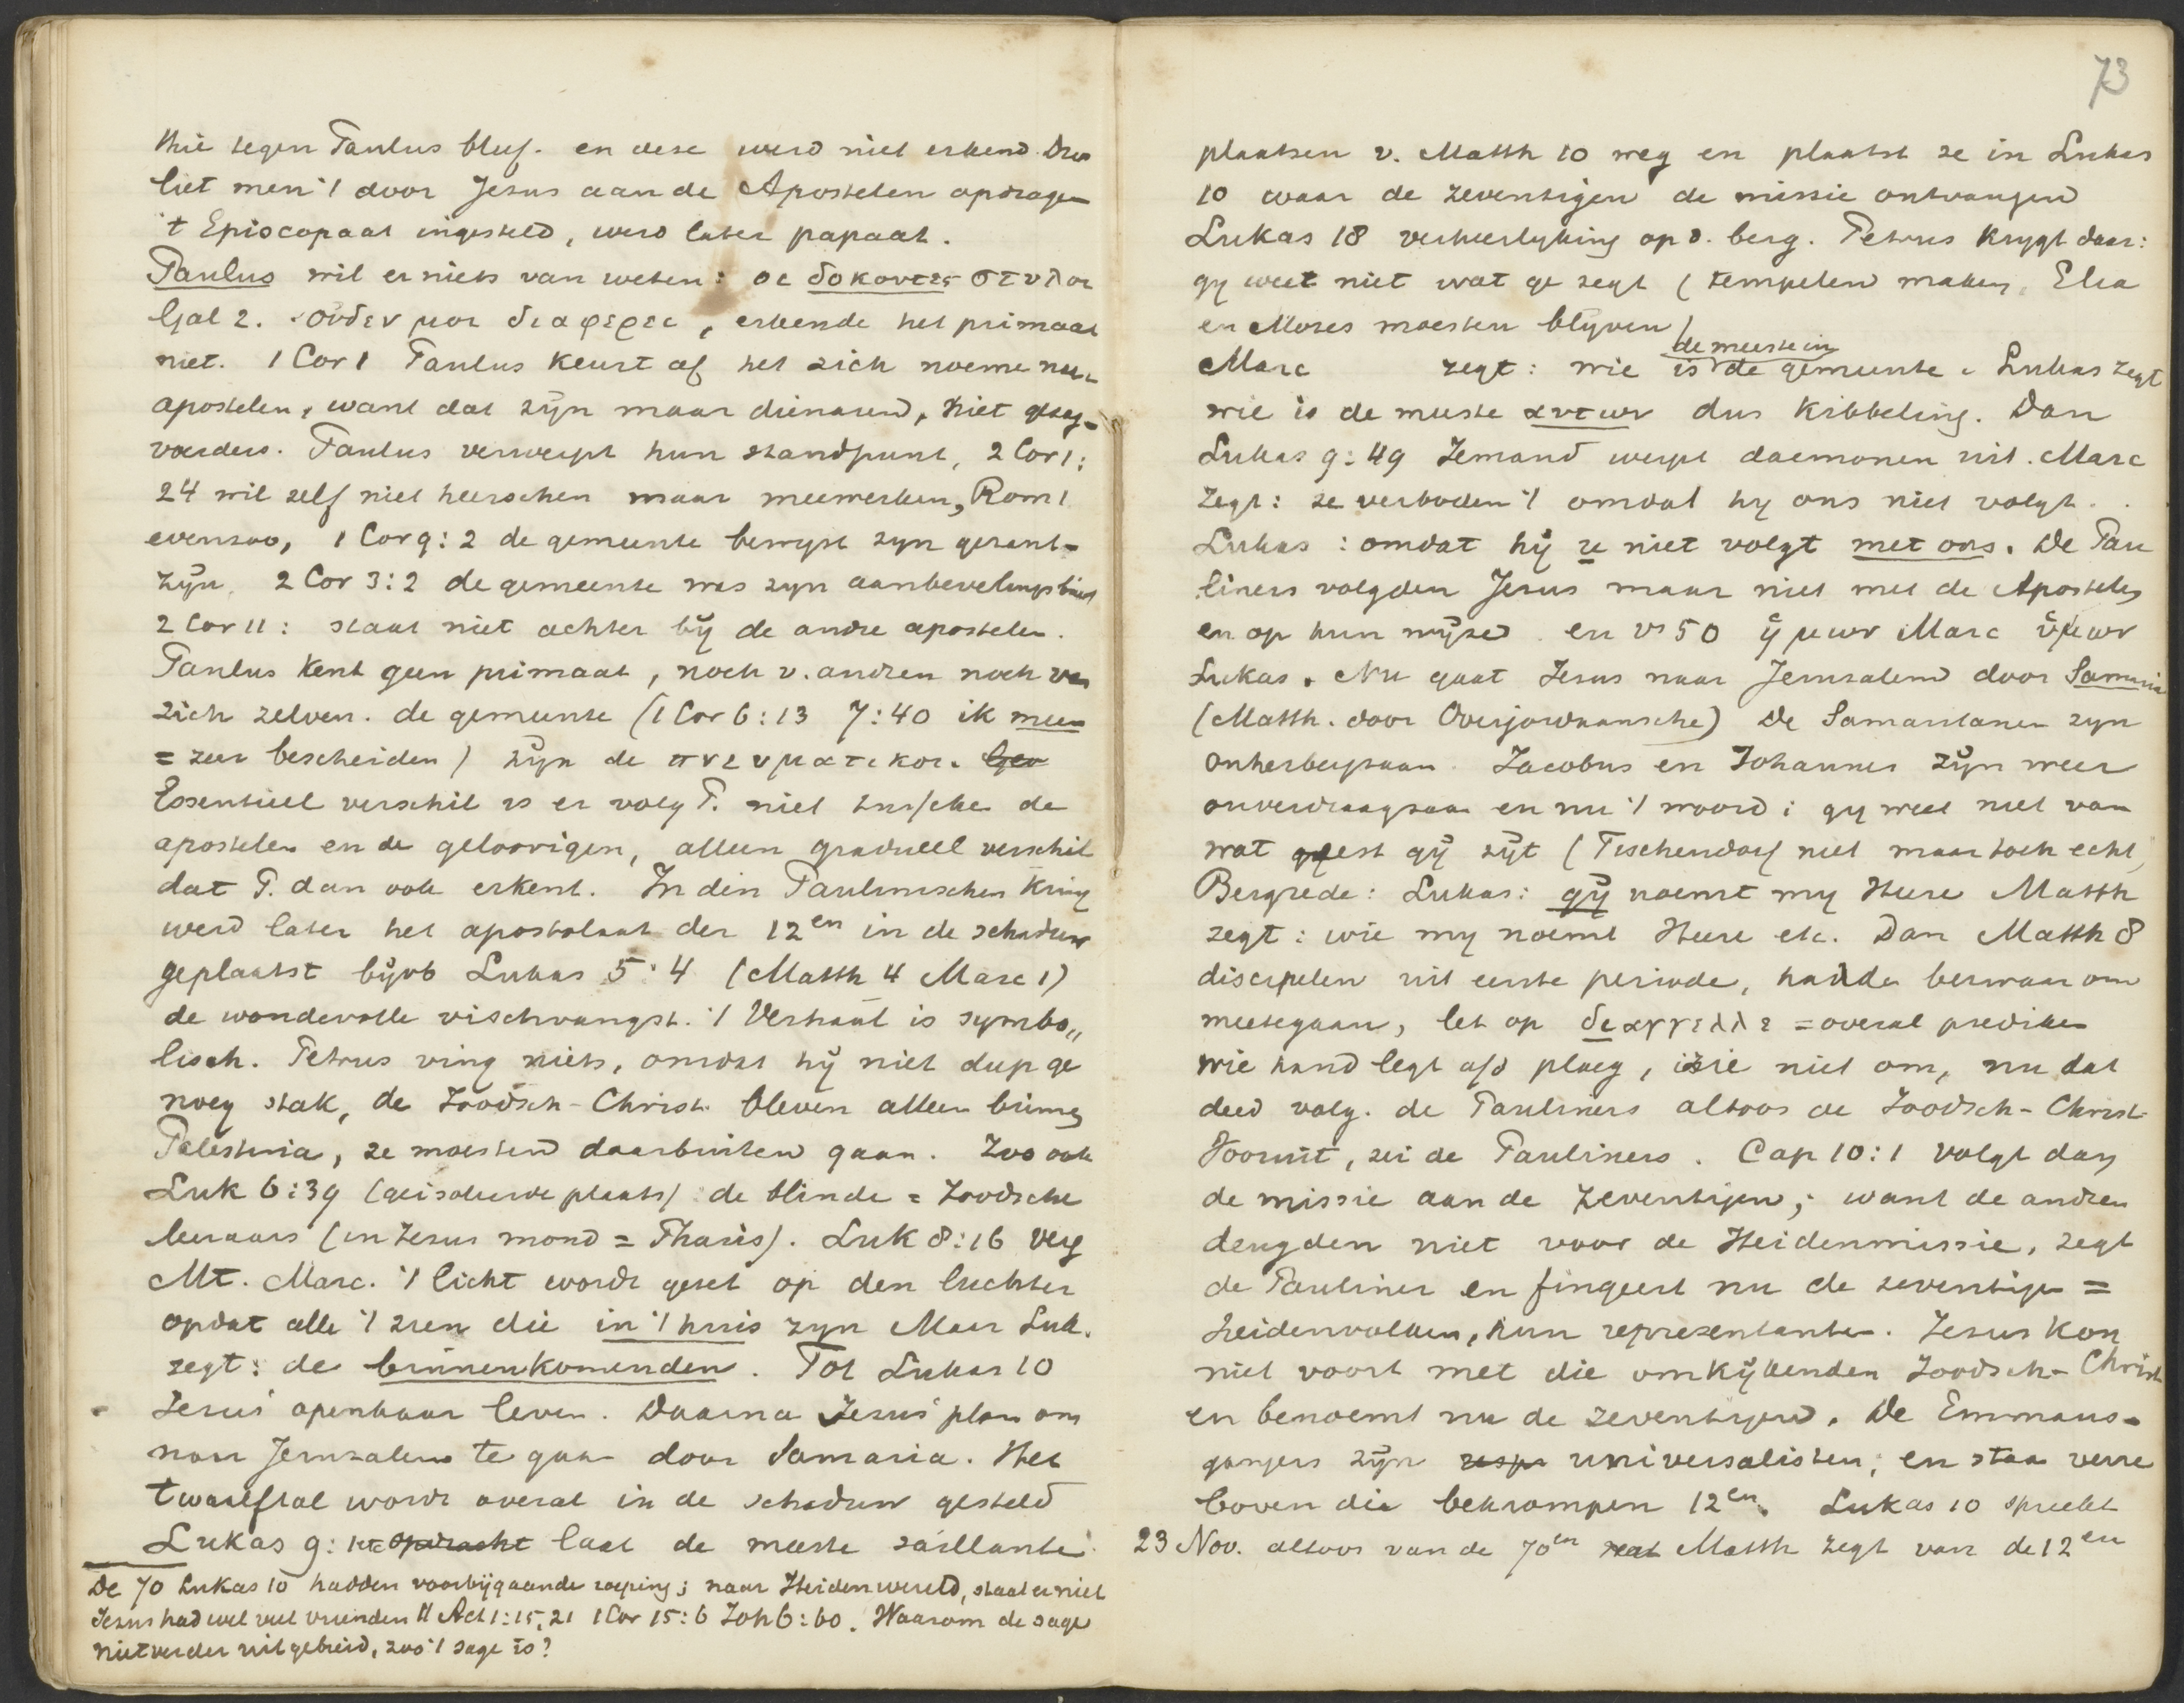 thie tegen Paulus bleef. en deze werd niet erkend. Dus
liet men 't door Jesus aan de Apostelen opdragen
't Episcopaat ingesteld, werd later papaat.
Paulus wil er niets van weten: οι δοκουντες στυλοι
Gal 2. ουδεν μοι διαφερει, erkende het primaat
niet. 1 Cor 1 Paulus keurt af het zich noeme naar
apostelen, want dat zijn maar dienaren, niet gezag-
voerders. Paulus verwerpt hun standpunt, 2 Cor 1:
24 wil zelf niet heerschen maar meewerken, Rom 1
evenzoo, 1 Cor 9:2 de gemeente bewijst zyn gezant-
zijn. 2 Cor 3:2 de gemeente was zyn aanbevelingsbrief
2 Cor 11: staat niet achter bij de andre apostelen.
Paulus kent geen primaat, noch v. andren noch van
zich zelven. de gemeente (1 Cor 6:13 7:40 ik meen
= zeer bescheiden) zijn de πνευματικοι.
Essentieel verschil is er volg P. niet tusschen de
apostelen en de geloovigen, alleen gradueel verschil
dat P. dan ook erkent. In den Paulinischen Kring
werd later het apostolaat der 12en in de schaduw
geplaatst bijvb Lukas 5:4 (Matth 4 Marc 1)
de wondervolle vischvangst. 't Verhaal is symbo„
lisch. Petrus ving niets, omdat hij niet diep ge
noeg stak, de Joodsch-Christ. bleven alleen binnen
Palestina, ze moesten daarbuiten gaan. Zoo ook
Luk 6:39 (geisoleerde plaats) de blinde = Joodsche
leeraars (in Jesus mond = Phariz). Luk 8:16 verg
Mt. Marc. 't licht wordt gezet op den luchter
opdat alle 't zien die in 't huis zyn Maar Luk.
zegt: de binnenkomenden. Tot Lukas 10
Jesus' openbaar leven. Daarna Jesus' plan om
naar Jerusalem te gaan door Samaria. Het
twaalftal wordt overal in de schaduw gesteld
Lukas 9: opdracht laat de meeste saillante
De 70 Lukas 10 hadden voorbijgaande roeping; naar Heidenwereld, staat er niet
Jesus had wel veel vrienden ll Act 1:15, 21 1 Cor 15:6 Joh 6:60. Waarom de sage
niet verder uitgebreid, zoo 't sage is?
73
plaatsen v. Matth 10 weg en plaatst ze in Lukas
10 waar de zeventigen de missie ontvangen
Lukas 18 verheerlyking op d. berg. Petrus krygt daar:
gy weet niet wat ge zegt (tempelen maken, Elia
en Moses moesten blijven)
de meeste in
Marc zegt: wie is de gemeente. Lukas zegt
wie is de meeste αυτων dus kibbeling. Dan
Lukas 9:49 Iemand werpt daemonen uit. Marc
zegt: ze verboden 't omdat hy ons niet volgt.
Lukas: omdat hij u niet volgt met ons. De Pau
liners volgden Jesus maar niet met de Apostelen
en op hun wijze. en vs 50 ημων Marc υμων
Lukas. Nu gaat Jesus naar Jerusalem door Samaria
(Matth. door Overjordaansche) De Samaritanen zyn
onherbergzaam. Jacobus en Johannes zijn weer
onverdraagzaam en nu 't woord: gy weet niet van
wat geest gij zijt (Tischendorf niet maar toch echt)
Bergrede: Lukas: gij noemt my Heere Matth
zegt: wie my noemt Heere etc. Dan Matth 8
discipelen uit eerste periode, hadden bezwaar om
meetegaan, let op διαγγελλε = overal prediken
wie hand legt a/d ploeg, zie niet om, nu dat
deed volg. de Pauliners altoos de Joodsch-Christ.
Vooruit, zei de Pauliners. Cap 10:1 volgt dan
de missie aan de zeventigen, want de andren
deugden niet voor de Heidenmissie, zegt
de Pauliner en fingeert nu de zeventigen =
heidenvolken, hun representanten. Jesus kon
niet voort met die omkijkenden Joodsch-Christ
en benoemt nu de zeventigen. De Emmaus-
gangers zijn universalisten, en staan verre
boven die bekrompen 12en. Lukas 10 spreekt
23 Nov. altoos van de 70en Matth zegt van de 12en